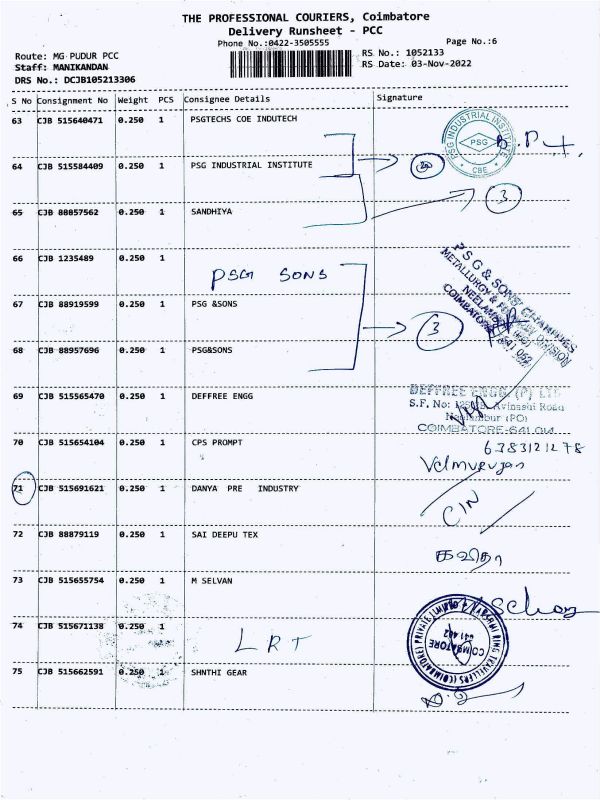 THE PROFESSIONAL COURIERS, Coimbatore
Delivery Runsheet - PCC
Phone No.:0422-3505555 Page No.:6
Route: MG PUDUR PCC RS No.: 1052133
Staff: MANIKANDAN RS Date: 03-Nov-2022
DRS No.: DCJB105213306
S No Consignment No Weight PCS Consignee Details Signature
63 CJB 515640471 0.250 1 PSGTECHS COE INDUTECH
PSG INDUSTRIAL INSTITUTE
PSG
CBE
64 CJB 515584409 0.250 1 PSG INDUSTRIAL INSTITUTE
3
65 CJB 88857562 0.250 1 SANDHIYA
66 CJB 1235489 0.250 1
PSG SONS
P S G & SONS' CHARITIES
METALLURGY & FOUNDRY DIVISION
NEELAMBUR (PO)
COIMBATORE - 641 062
67 CJB 88919599 0.250 1 PSG &SONS
3
68 CJB 88957696 0.250 1 PSG&SONS
69 CJB 515565470 0.250 1 DEFFREE ENGG
DEFFREE ENGG. (P) LTD
S.F. No: Avinashi Road
Neelambur (PO)
COIMBATORE-641 014
70 CJB 515654104 0.250 1 CPS PROMPT
6383121278
Velmurugan
71 CJB 515691621 0.250 1 DANYA PRE INDUSTRY
CIN
72 CJB 88879119 0.250 1 SAI DEEPU TEX
கவிதா
73 CJB 515655754 0.250 1 M SELVAN
74 CJB 515671138 0.250 1
LRT
LAKSHMI RING TRAVELLERS (COIMBATORE) PRIVATE LIMITED
COIMBATORE
641 402
75 CJB 515662591 0.250 1 SHNTHI GEAR